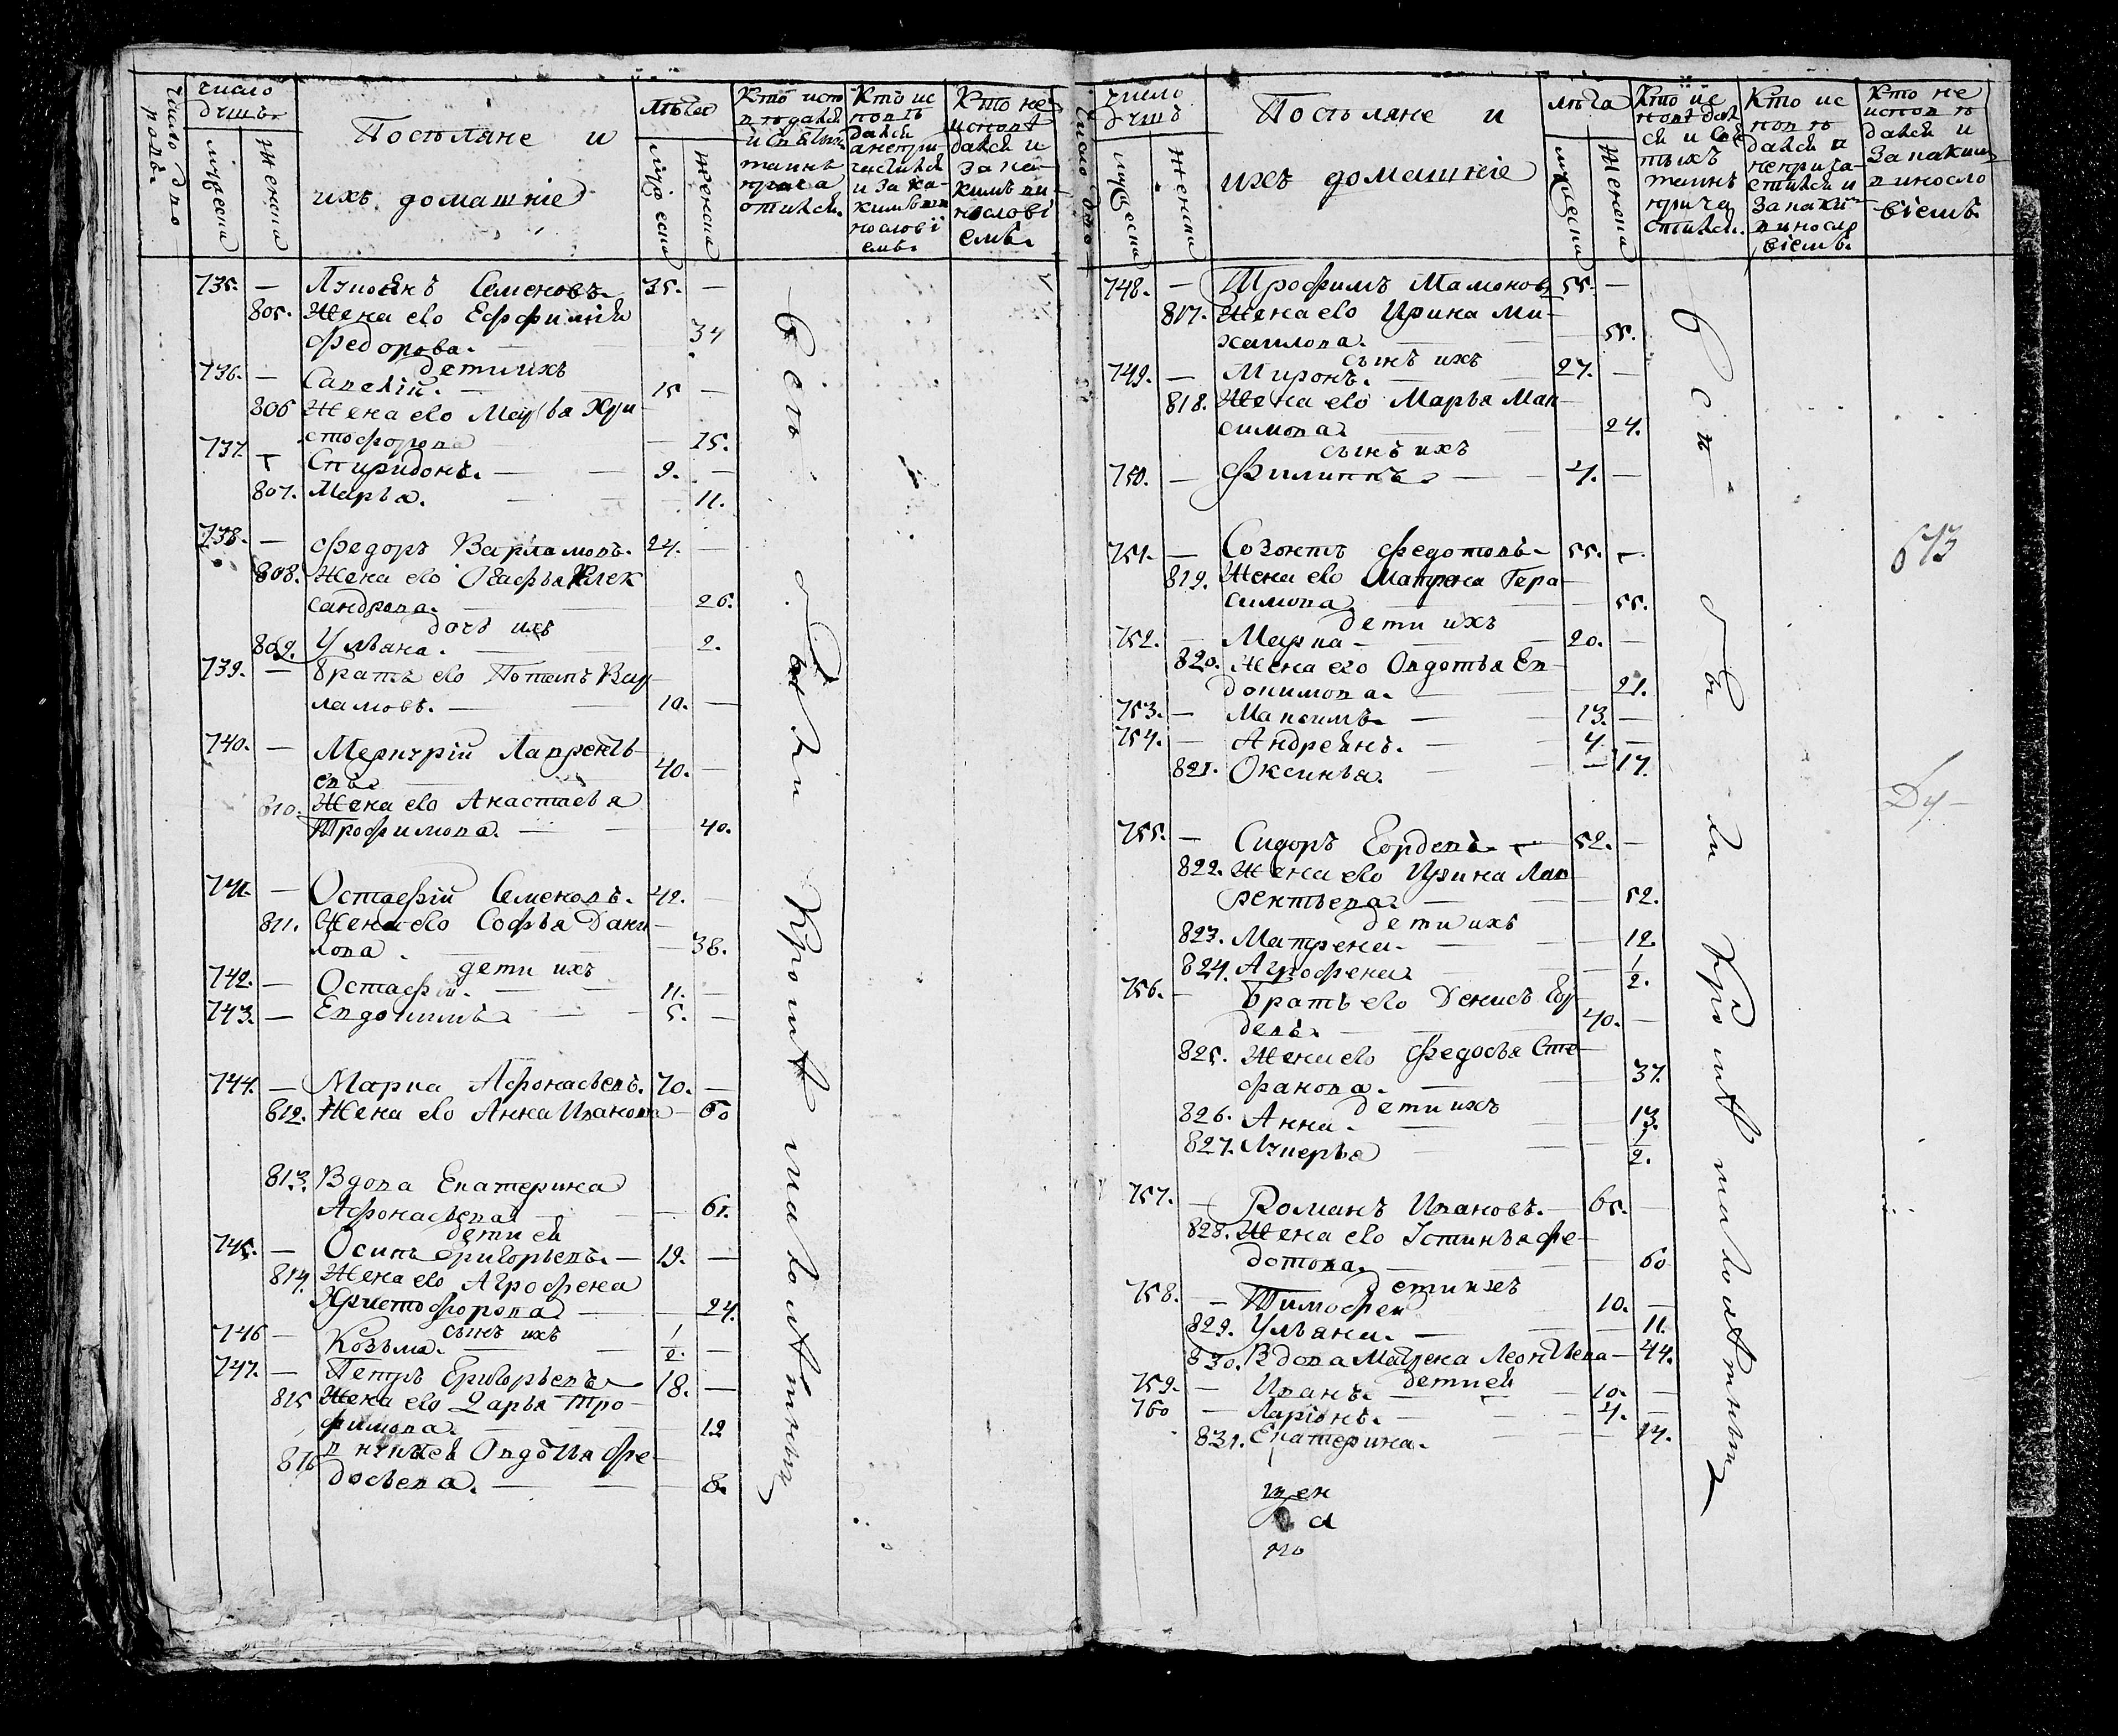 число дво
ровъ
число
душъ
мужеска
женска
Поселяне и
ихъ домашніе
лѣта
мужеска
женска
Кто испо
вѣдался
и Св Стыхъ
таинъ
прича
стился
Кто ис
повѣ
дался
а непри
частился
и за ка-
кимъ ви
нословї
емъ
Кто не
исповѣ
дался и
за ка-
кимъ ви-
нословї
емъ
735. — Лукоянъ Семеновъ 35. —
805. Жена ево Ефимия
Федорова. — 34
дети ихъ
736. — Савелій. — 15 —
806 Жена ево Марья Хри-
стофорова — 15.
737 — Спиридонъ. — 9. —
807. Марья. — 11.
738. — Федоръ Варламовъ. 24. —
808. Жена ево Агафья Алек
сандрова. — 26.
дочь ихъ
809. Ульяна. — 2.
739. — братъ ево Потапъ Вар-
ламовъ. — 10. —
740. — Меркурій Лаврентъ-
евъ — 40. —
810. Жена ево Анастасья
Трофимова. — 40.
741. — Остафій Семеновъ. 42. —
811. Жена ево Софья Дани-
лова — 38.
дети ихъ
742. — Остафій. — 11. —
743. — Евдокимъ — 5. —
744. — Марка Афонасьевъ. 70. —
812. Жена ево Анна Иванова — 60
813. Вдова Екатерина
Афонасьева — 61.
дети ей
745. — Осипъ Григорьевъ. — 19. —
814. Жена ево Агрофена
Христофорова — 24.
сынъ ихъ
746 — Козьма. — 1/2. —
747. — Петръ Григорьевъ 18. —
815 Жена ево Дарья Тро-
фимова. — 19
816 внука Овдотья Фе-
досьева. — 8.
Всѣ были Кромѣ малолѣтныхъ
число дво
число
душъ
мужеска
женска
Поселяне и
ихъ домашніе
лѣта
мужеска
женска
Кто ис
повѣдал
ся и Свя
тыхъ
таинъ
прича
стился.
Кто ис
повѣ
дался и
неприча-
стился и
за каки
винослo
віемъ.
Кто не
исповѣ
дался и
за каким
винослo
віемъ
748. — Трофимъ Мамоновъ 55. —
817. Жена ево Ирина Ми-
хаилова. — 55.
сынъ ихъ
749. — Миронъ. — 27. —
818. Жена ево Марья Мак-
симова — 24.
сынъ ихъ
750. — Филиппъ — 4. —
751. — Созонтъ Федотовъ — 55. —
819. Жена ево Матрена Гера-
симова — 55.
дети ихъ
752. — Марка — 20. —
820. Жена ево Овдотья Ев-
докимова. — 21.
753. — Максимъ — 13. —
754. — Андреянъ. — 4 —
821. Оксинья. — 17.
755. — Сидоръ Гордевъ. — 52. —
822. Жена ево Ирина Лав
рентьева — 52.
дети ихъ
823. Матрена. — 12.
824. Агрофена — 1/2.
756. — братъ ево Денисъ Гор-
девъ. — 40. —
825. Жена ево Федосья Сте-
фанова. — 37.
дети ихъ
826. Анна. — 13.
827. Лукерья — 1/2.
757. — Романъ Ивановъ. — 65. —
828. Жена ево Устинья Фе-
дотова. — 60
дети ихъ
758. — Тимофей 10. —
829. Ульяна. — 11.
830. Вдова Матрена Леонтьева — 44.
дети ей
759. — Иванъ. — 10. —
760 — Ларіонъ. — 4. —
831. Екатерина. — 14.
Всѣ были Кромѣ малолѣтныхъ